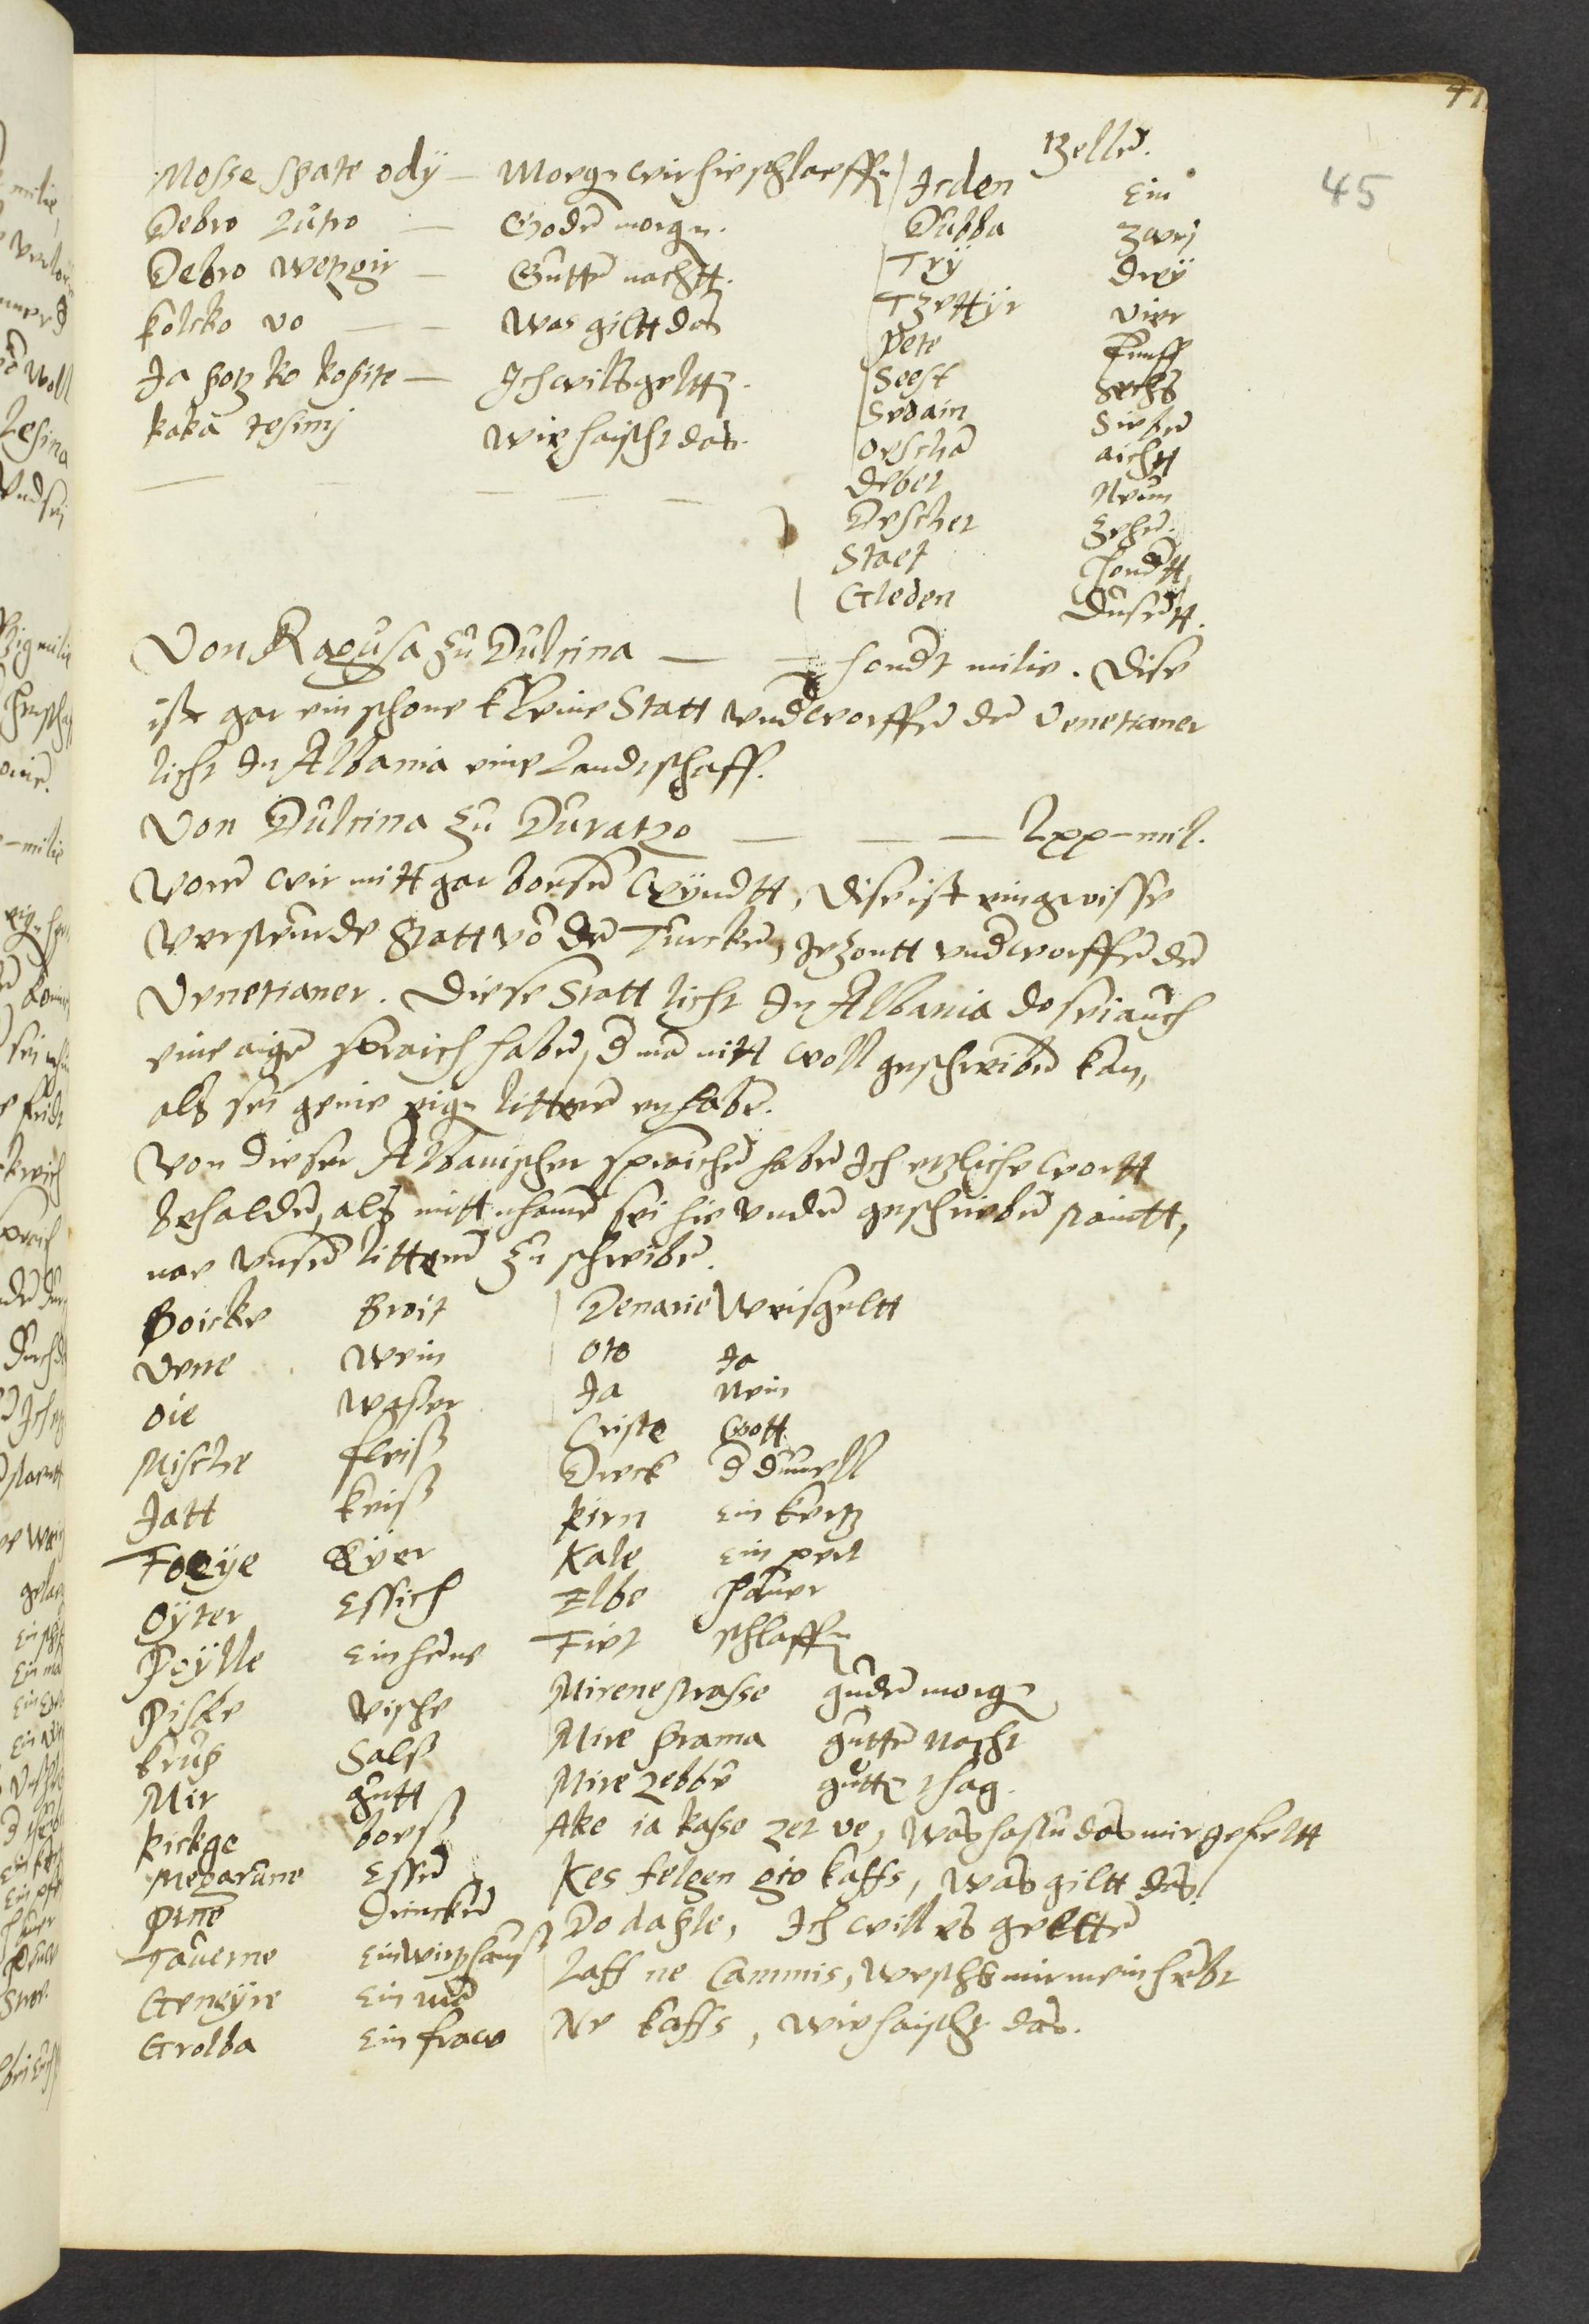 41
45
Zellen.
Mosse spate ody — Morgen wir hie schlaeffen
Debro zutro — Goden morgen.
Debro wetzgir — Gutten nachtt.
Kolcko vo — — Was giltt das
Ja hotz ko kopite — Ich wils geltten.
kaka tesimy wie haischt das.
Jeden Ein
Dubba zwej
Try drey
Tzettyr vier
Pete Funff
Seest Sechs
Sedam Sieben
Oescham aichtt
Debet Neun
Deschet zehen.
Staet hondertt
Gleden Dusentt.
Von Ragusa zu Dulcina — — hondert milie. Dise
ist gar ein schone kleine Statt underworffen den Venetianer
licht In Albania eine Landtschaff.
Von Dulcina zu Duratzo — — — Lxx – mil.
Voren wir mitt gar boesen wyndtt, dise ist ein gewisse
verstoerde Statt von den Turcken, jetzontt underworffen den
Venetianer. Diese Statt licht In Albania do sei auch
eine aigen spraich haben, der man nitt woll geschreiben kan,
als sei geine eigen litteren en haben.
Von dieser Albanischer sprachen haben Ich etzliche wortt
behalden, als mitt nhamen sei hie unden geschrieben staintt,
nae unsen litteren zu schreiben.
Boicke Broit
Vene Wein
Oie Wasser
Mische fleiß
Jatt keiß
Foeye Eyer
Oyter Essich
Poylle Ein hene
Piske Vische
krup Salß
Mir gutt
kickge boeß
Megarune Essen
Pine Drincken
Tauerne Ein wirtzhauß
Geneyre Ein man
Grolba Ein fraw
Denarie Weisgeltt
Oto Ja
Ja Nein
Criste Gott
Dreck der duuell
kirn Ein kertz
Kale Ein pert
Elbe hauer
Fiet schlaffen
Mirenestrasse guden morgen
Mire prama gutten Nacht
Mirezebbre gutten thag.
Ake ia kasse zet ve, was hastu das mir gefeltt
Kes felgen gio kaffs, was giltt das?
Do daple, Ich will es geltten
Laff ne Cammis, weschs mir mein hembt
Ne kaffs, wie haischt das.